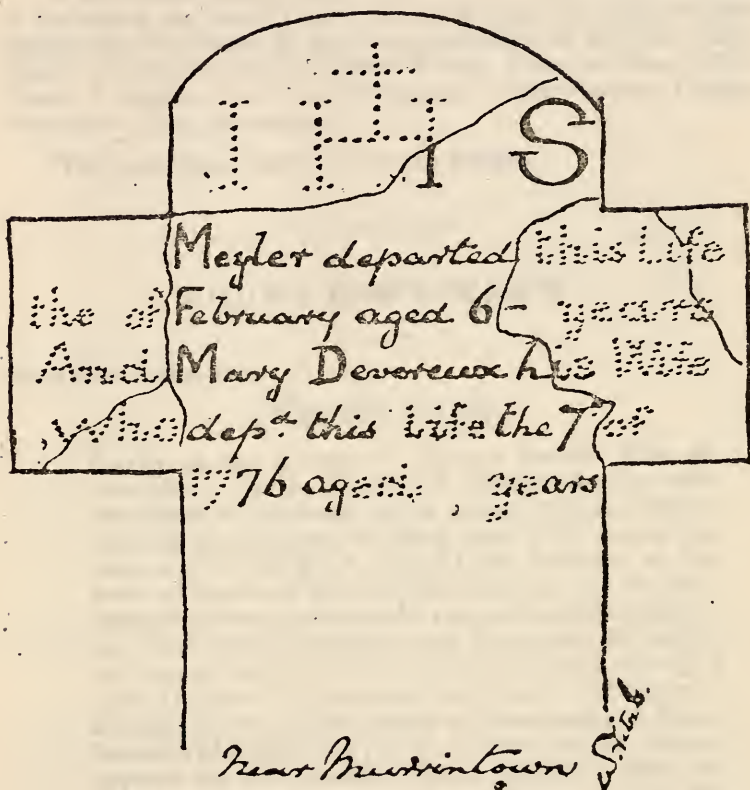 IHS
Meyler departed this Life
the of February aged 6- years
And Mary Devereux his Wife
Who dep.d this Life the 7 of
1776 aged, years
Near Murrintown